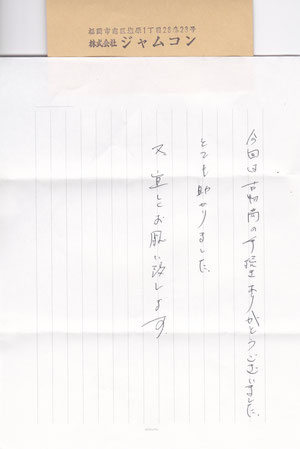 株式会社 ジャムコン
今回は古物商の手続きありがとうございました。
とても助かりました。
又、宜しくお願い致します